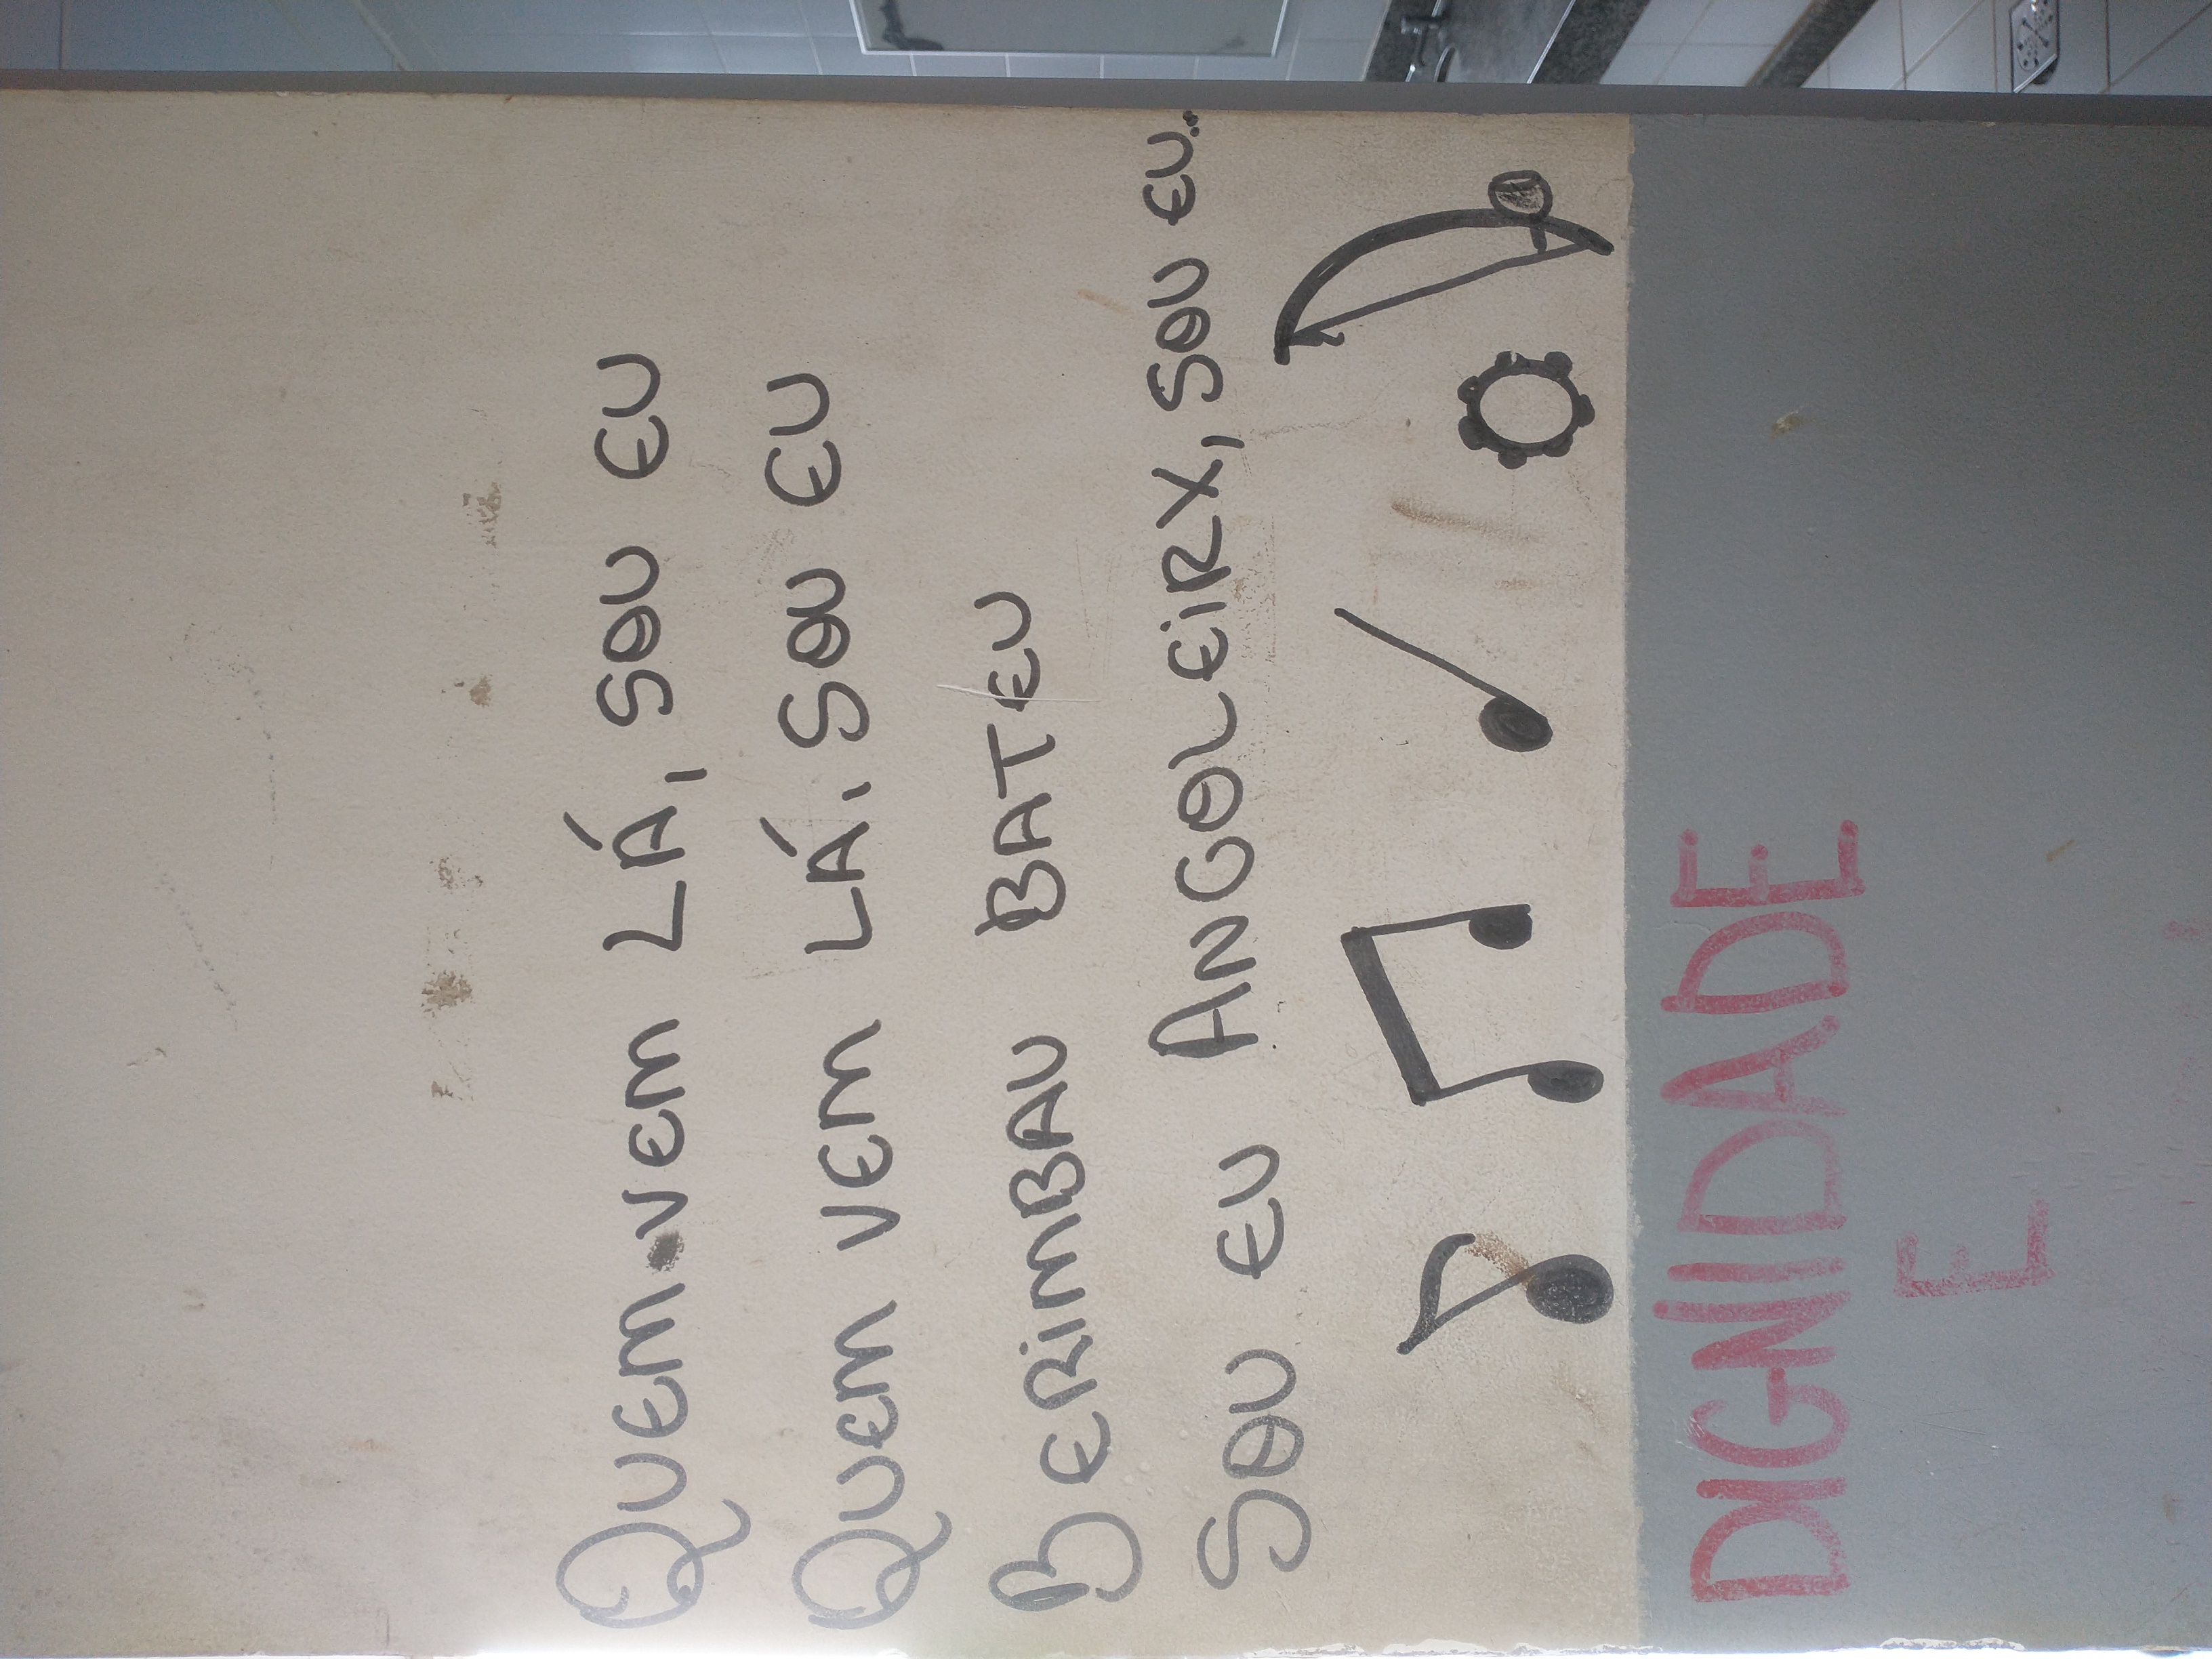 QUEM VEM LÁ, SOU EU
QUEM VEM LÁ, SOU EU
BERIMBAU BATEU
SOU EU ANGOLEIRX, SOU EU...
DIGNIDADE
E